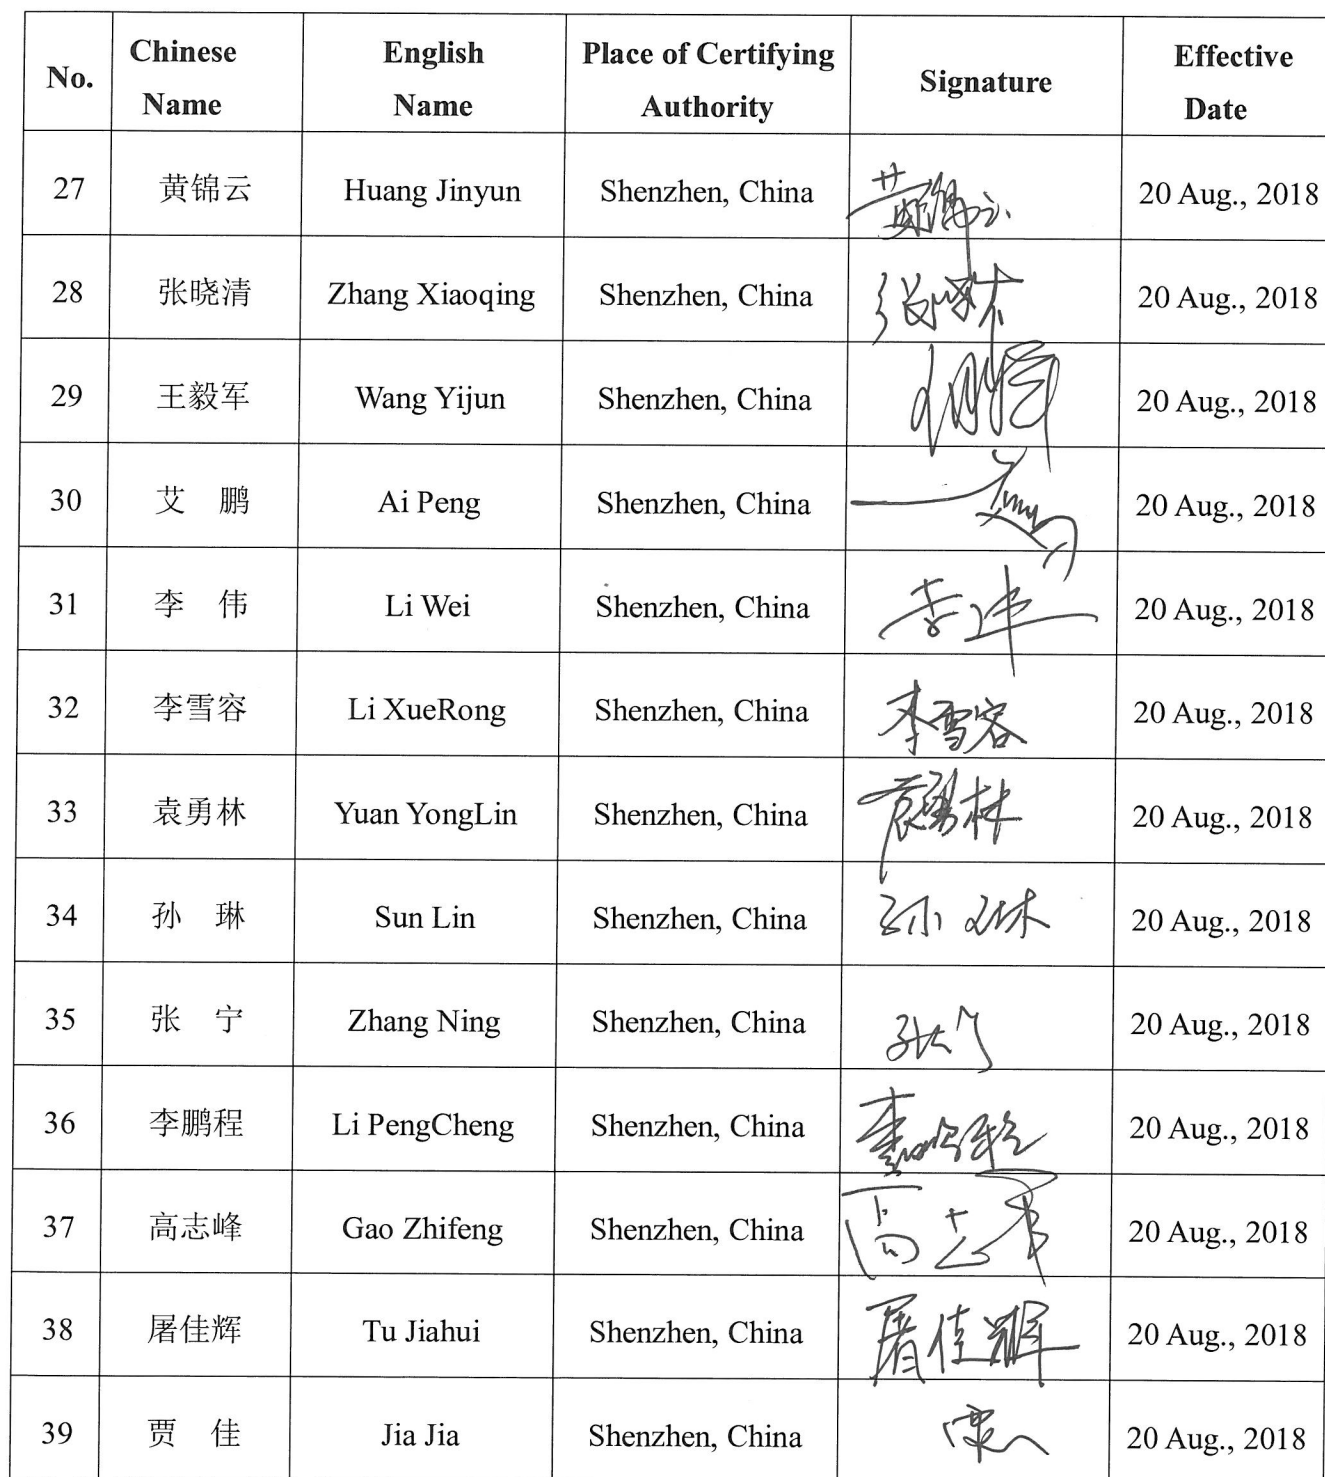 No. Chinese Name English Name Place of Certifying Authority Signature Effective Date
27 黄锦云 Huang Jinyun Shenzhen, China 黄锦云 20 Aug., 2018
28 张晓清 Zhang Xiaoqing Shenzhen, China 20 Aug., 2018
29 王毅军 Wang Yijun Shenzhen, China 20 Aug., 2018
30 艾 鹏 Ai Peng Shenzhen, China 20 Aug., 2018
31 李 伟 Li Wei Shenzhen, China 李伟 20 Aug., 2018
32 李雪容 Li XueRong Shenzhen, China 李雪容 20 Aug., 2018
33 袁勇林 Yuan YongLin Shenzhen, China 袁勇林 20 Aug., 2018
34 孙 琳 Sun Lin Shenzhen, China 孙琳 20 Aug., 2018
35 张 宁 Zhang Ning Shenzhen, China 张宁 20 Aug., 2018
36 李鹏程 Li PengCheng Shenzhen, China 李鹏程 20 Aug., 2018
37 高志峰 Gao Zhifeng Shenzhen, China 高志峰 20 Aug., 2018
38 屠佳辉 Tu Jiahui Shenzhen, China 屠佳辉 20 Aug., 2018
39 贾 佳 Jia Jia Shenzhen, China 20 Aug., 2018